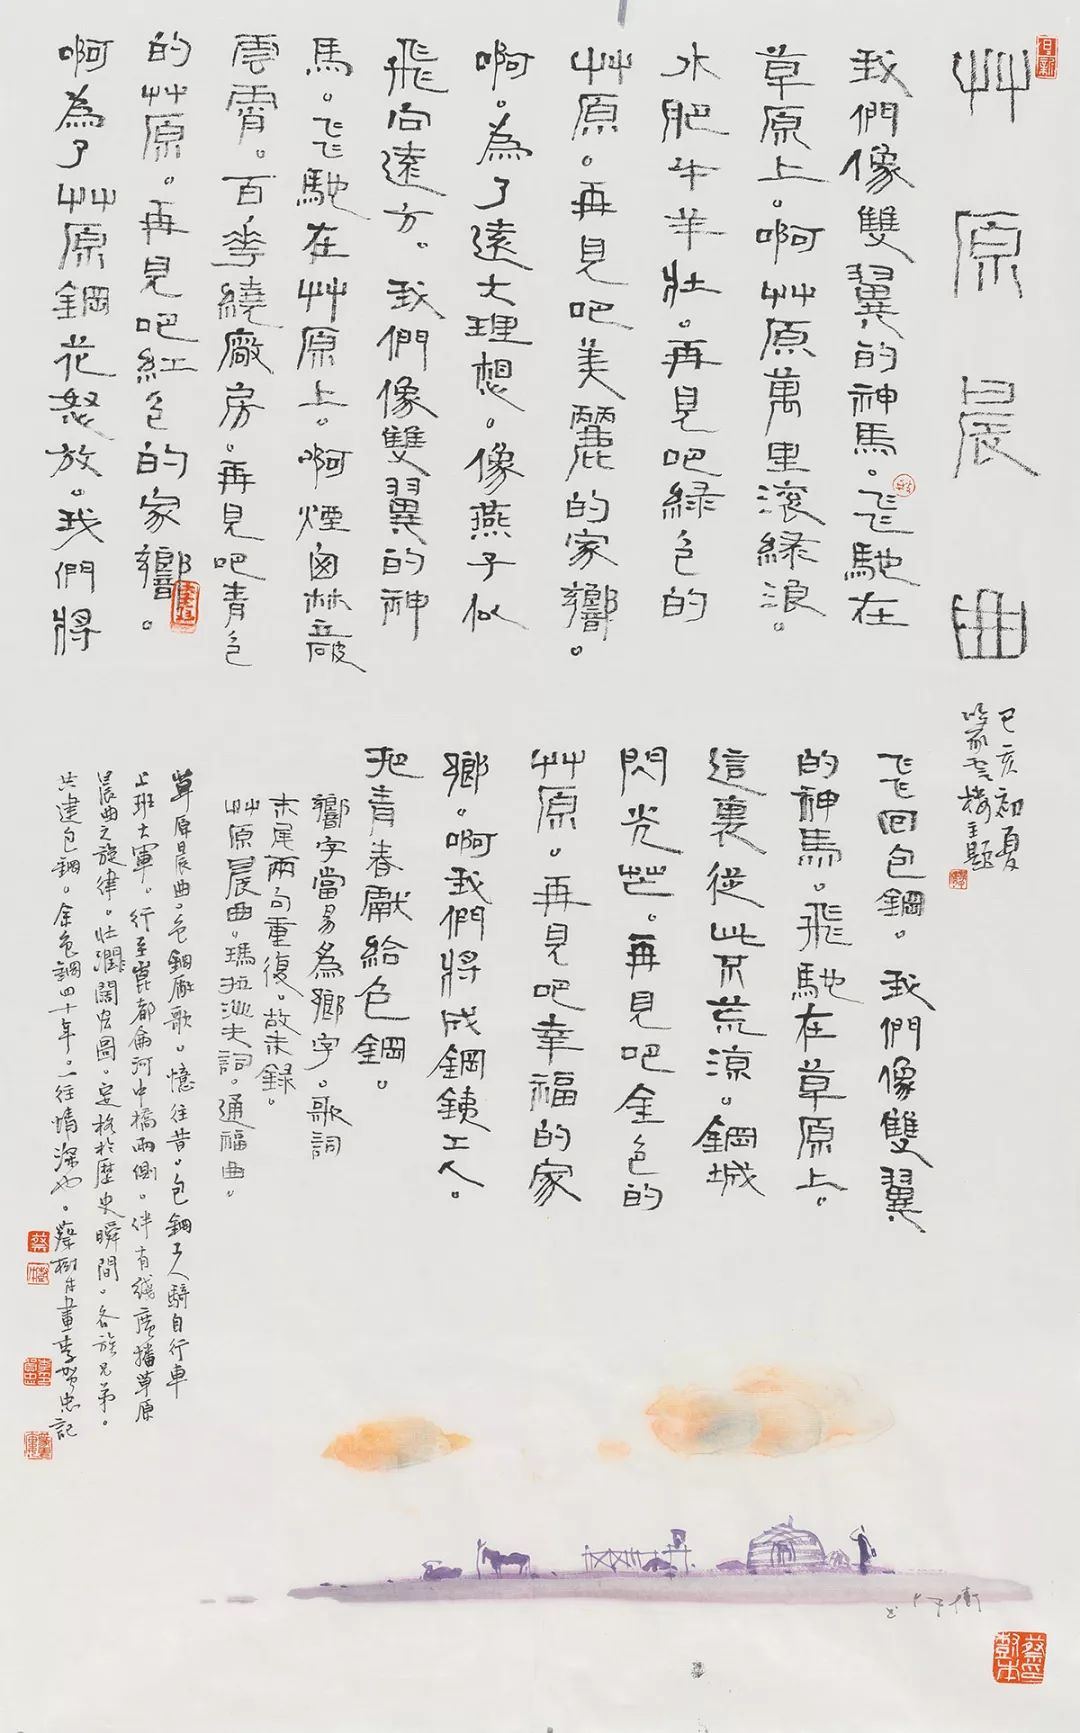 艸原晨曲
己亥初夏
篆云樓主題
我們像雙翼的神馬。飛馳在
草原上。啊艸原萬里滾緑浪。
水肥牛羊壯。再見吧緑色的
艸原。再見吧美麗的家響。
啊。為了遠大理想。像燕子似
飛向遠方。我們像雙翼的神
馬。飛馳在艸原上。啊煙囱林立敲
雲霄。百花繞廠房。再見吧青色
的艸原。再見吧紅色的家響。
啊為了艸原鋼花怒放。我們將
飛回包鋼。我們像雙翼
的神馬。飛馳在草原上。
這裏從此不荒涼。鋼城
閃光芒。再見吧金色的
艸原。再見吧幸福的家
鄉。啊我們將成鋼銕工人。
把青春獻給包鋼。
響字當易為鄉字。歌詞
末尾兩句重復。故未録。
艸原晨曲。瑪拉沁夫詞。通福曲。
草原晨曲。包鋼廠歌。憶往昔。包鋼工人騎自行車
上班大軍。行至崑都侖河中橋兩側。伴有綫廣播草原
晨曲之旋律。壯濶闊宏圖。定格於歷史瞬間。各族兄弟。
共建包鋼。余包鋼四十年。一往情深也。蔡樹本畫李賀忠記